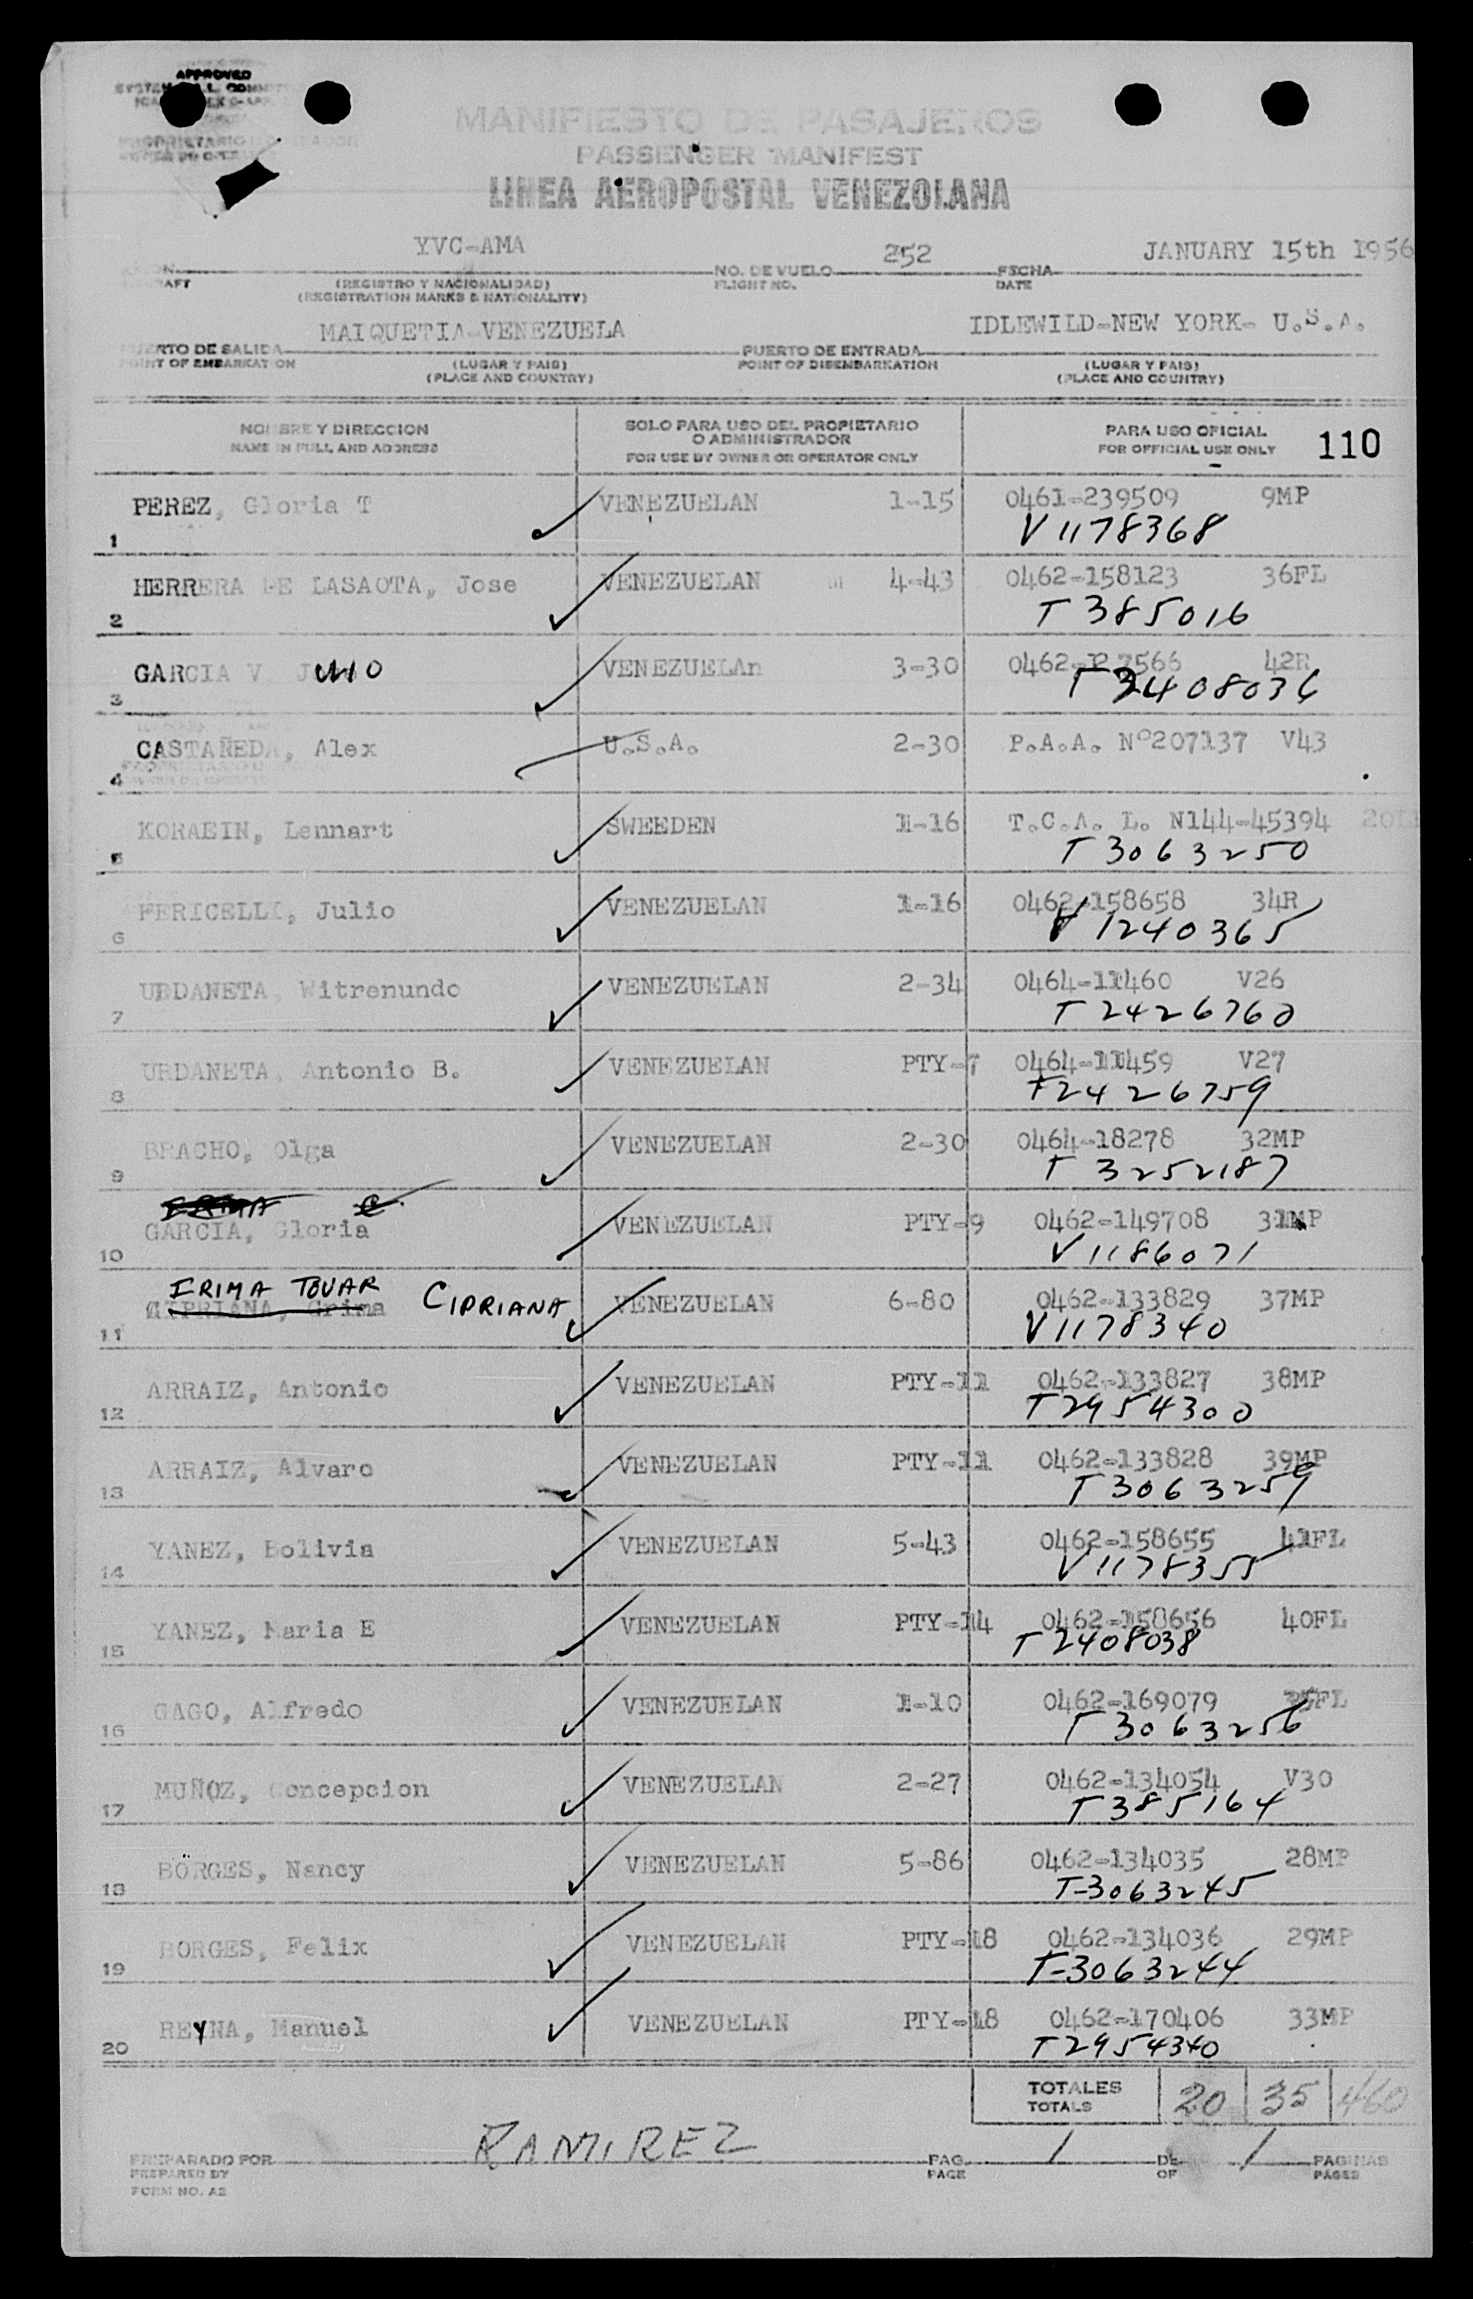 APPROVED
MANIFIESTO DE PASAJEROS
PASSENGER MANIFEST
LINEA AEROPOSTAL VENEZOLANA
YVC-AMA 252 JANUARY 15th 1956
NO. DE VUELO FECHA
(REGISTRO Y NACIONALIDAD) FLIGHT NO. DATE
(REGISTRATION MARKS & NATIONALITY)
MAIQUETIA-VENEZUELA IDLEWILD-NEW YORK- U.S.A.
PUERTO DE SALIDA PUERTO DE ENTRADA
POINT OF EMBARKATION (LUGAR Y PAIS) POINT OF DISEMBARKATION (LUGAR Y PAIS)
(PLACE AND COUNTRY) (PLACE AND COUNTRY)
NOMBRE Y DIRECCION SOLO PARA USO DEL PROPIETARIO PARA USO OFICIAL
NAME IN FULL AND ADDRESS O ADMINISTRADOR FOR OFFICIAL USE ONLY 110
FOR USE BY OWNER OR OPERATOR ONLY
PEREZ, Gloria T VENEZUELAN 1-15 0461-239509 9MP
1 V1178368
HERRERA DE LASAOTA, Jose VENEZUELAN 4-43 0462-158123 36FL
2 T385016
GARCIA V VENEZUELAn 3-30 42R
3 T2408036
CASTAÑEDA, Alex U.S.A. 2-30 P.A.A. Nº207137 V43
4
KORAEIN, Lennart SWEEDEN 1-16 T.C.A. L. N144-45394
5 T3063250
FERICELLI, Julio VENEZUELAN 1-16 0462-158658 34R
6 V1240365
URDANETA, Witremundo VENEZUELAN 2-34 0464-11460 V26
7 T2426760
URDANETA, Antonio B. VENEZUELAN PTY-7 0464-11459 V27
8 T2426759
BRACHO, Olga VENEZUELAN 2-30 0464-18278 32MP
9 T3252187
GARCIA, Gloria VENEZUELAN PTY-9 0462-149708 31MP
10 V1186071
IRIMA TOVAR CIPRIANA
CIPRIANA, Grima VENEZUELAN 6-80 0462-133829 37MP
11 V1178340
ARRAIZ, Antonio VENEZUELAN PTY-11 0462-133827 38MP
12 T2954300
ARRAIZ, Alvaro VENEZUELAN PTY-11 0462-133828 39MP
13 T3063259
YANEZ, Bolivia VENEZUELAN 5-43 0462-158655 41FL
14 V1178355
YANEZ, Maria E VENEZUELAN PTY-14 0462-158656 40FL
15 T2408038
GAGO, Alfredo VENEZUELAN 1-10 0462-169079
16 T3063256
MUÑOZ, Concepcion VENEZUELAN 2-27 0462-134054 V30
17 T385164
BORGES, Nancy VENEZUELAN 5-86 0462-134035 28MP
18 T-3063245
BORGES, Felix VENEZUELAN PTY-18 0462-134036 29MP
19 T-3063244
REYNA, Manuel VENEZUELAN PTY-18 0462-170406 33MP
20 T2954340
TOTALES 20 35 460
TOTALS
RAMIREZ
PREPARADO POR PAG. 1 DE 1 PAGINAS
PREPARED BY PAGE OF PAGES
FORM NO. A2